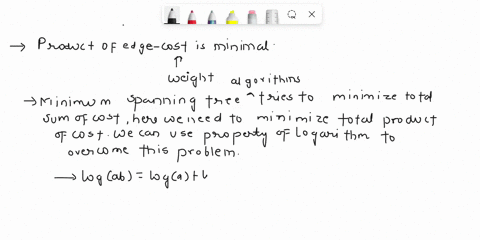 → Product of edge-cost is minimal.
weight algorithms
→ Minimum spanning tree ^ tries to minimize total
sum of cost, here we need to minimize total product
of cost. We can use property of logarithm to
overcome this problem.
→ log(ab) = log(a) + l